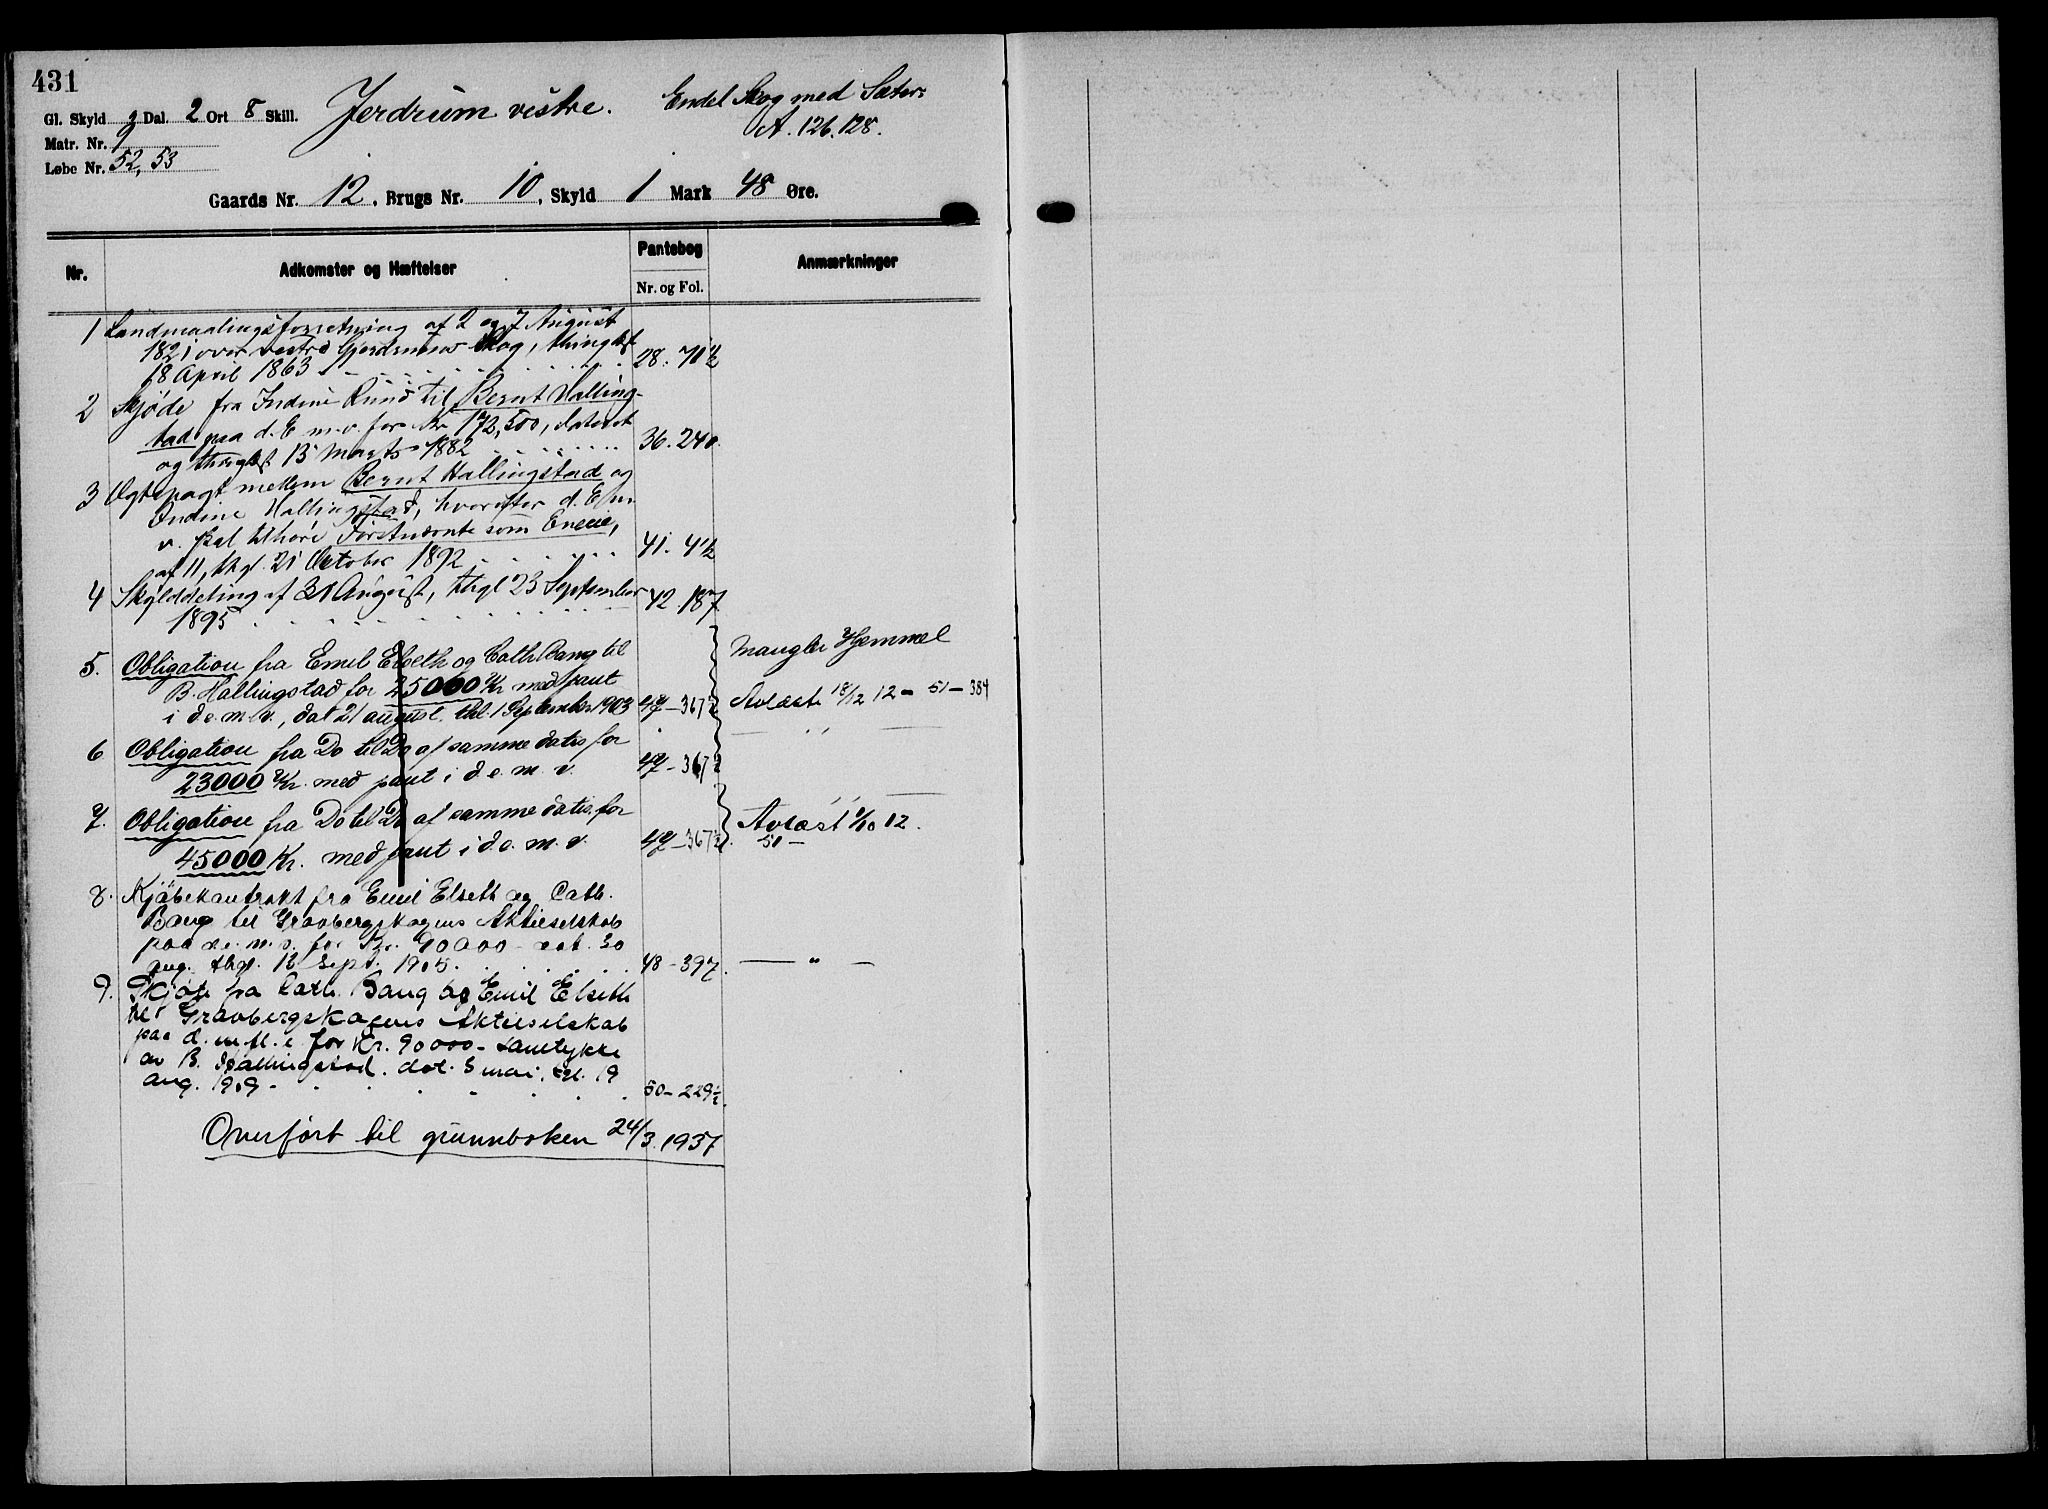 431
Gl. Skyld 3 Dal. 2 Ort 8 Skill.
Jerdrum vestre.
Endel Skog med Sæter:
A. 126.128.
Matr. Nr. 9
Løbe Nr. 52, 53
Gaards Nr. 12, Brugs Nr. 10, Skyld 1 Mark 48 Øre.
Nr.
Adkomster og Hæftelser
Pantebog
Nr. og Fol.
Anmærkninger
1 Landmaalingsforretning af 2 og 7 August
1821 over vestre Gjerdrums Skog, thinglæst
18 April 1863 28. 71½
2 Skjøde fra Indine Rund til Bernt Halling-
stad paa d. E m. v. for Kr 172,500, dateret
og thinglæst 13 Marts 1882 36. 240.
3 Ægtepagt mellem Bernt Hallingstad og
Ondine Hallingstad, hvorefter d. E m
v. skal tilhøre Førstnævnte som Eneeie,
af 11, thgl. 21 October 1892 41. 4½
4 Skylddeling af 31 August, thgl 23 September
1895 42 187
5. Obligation fra Emil Elseth og Cath. Bang til
B. Hallingstad for 25000 Kr med pant
i d. e. m. v., dat 21 august, thl. 1 September 1903 47-367½
Mangler Hjemmel
Avlæst 18/12 12 - 51 - 384
6 Obligation fra Do til Do af samme datis for
23000 Kr. med pant i d. e. m. v. 47-367½
— " —
7. Obligation fra Do til Do af samme datis, for
45000 Kr. med pant i d. e. m. v. 47-367½.
Avlæst 1/10 12.
51 -
8. Kjøbekontrakt fra Emil Elseth og Cath.
Bang til Gravbergskogens Aktieselskab
paa d. e. m. v. for Kr. 90000 - dat. 30
aug. thgl. 13 Sept. 1905. 48-397. — " —
9. Skjøte fra Cath. Bang og Emil Elseth
til Gravbergskogens Aktieselskab
paa d. m. fl. e for Kr. 90000 - samtykke
av B. Hallingstad. dat. 5 mai, tgl. 19
aug. 1909 - 50-229½.
Overført til grunnboken 24/3. 1937